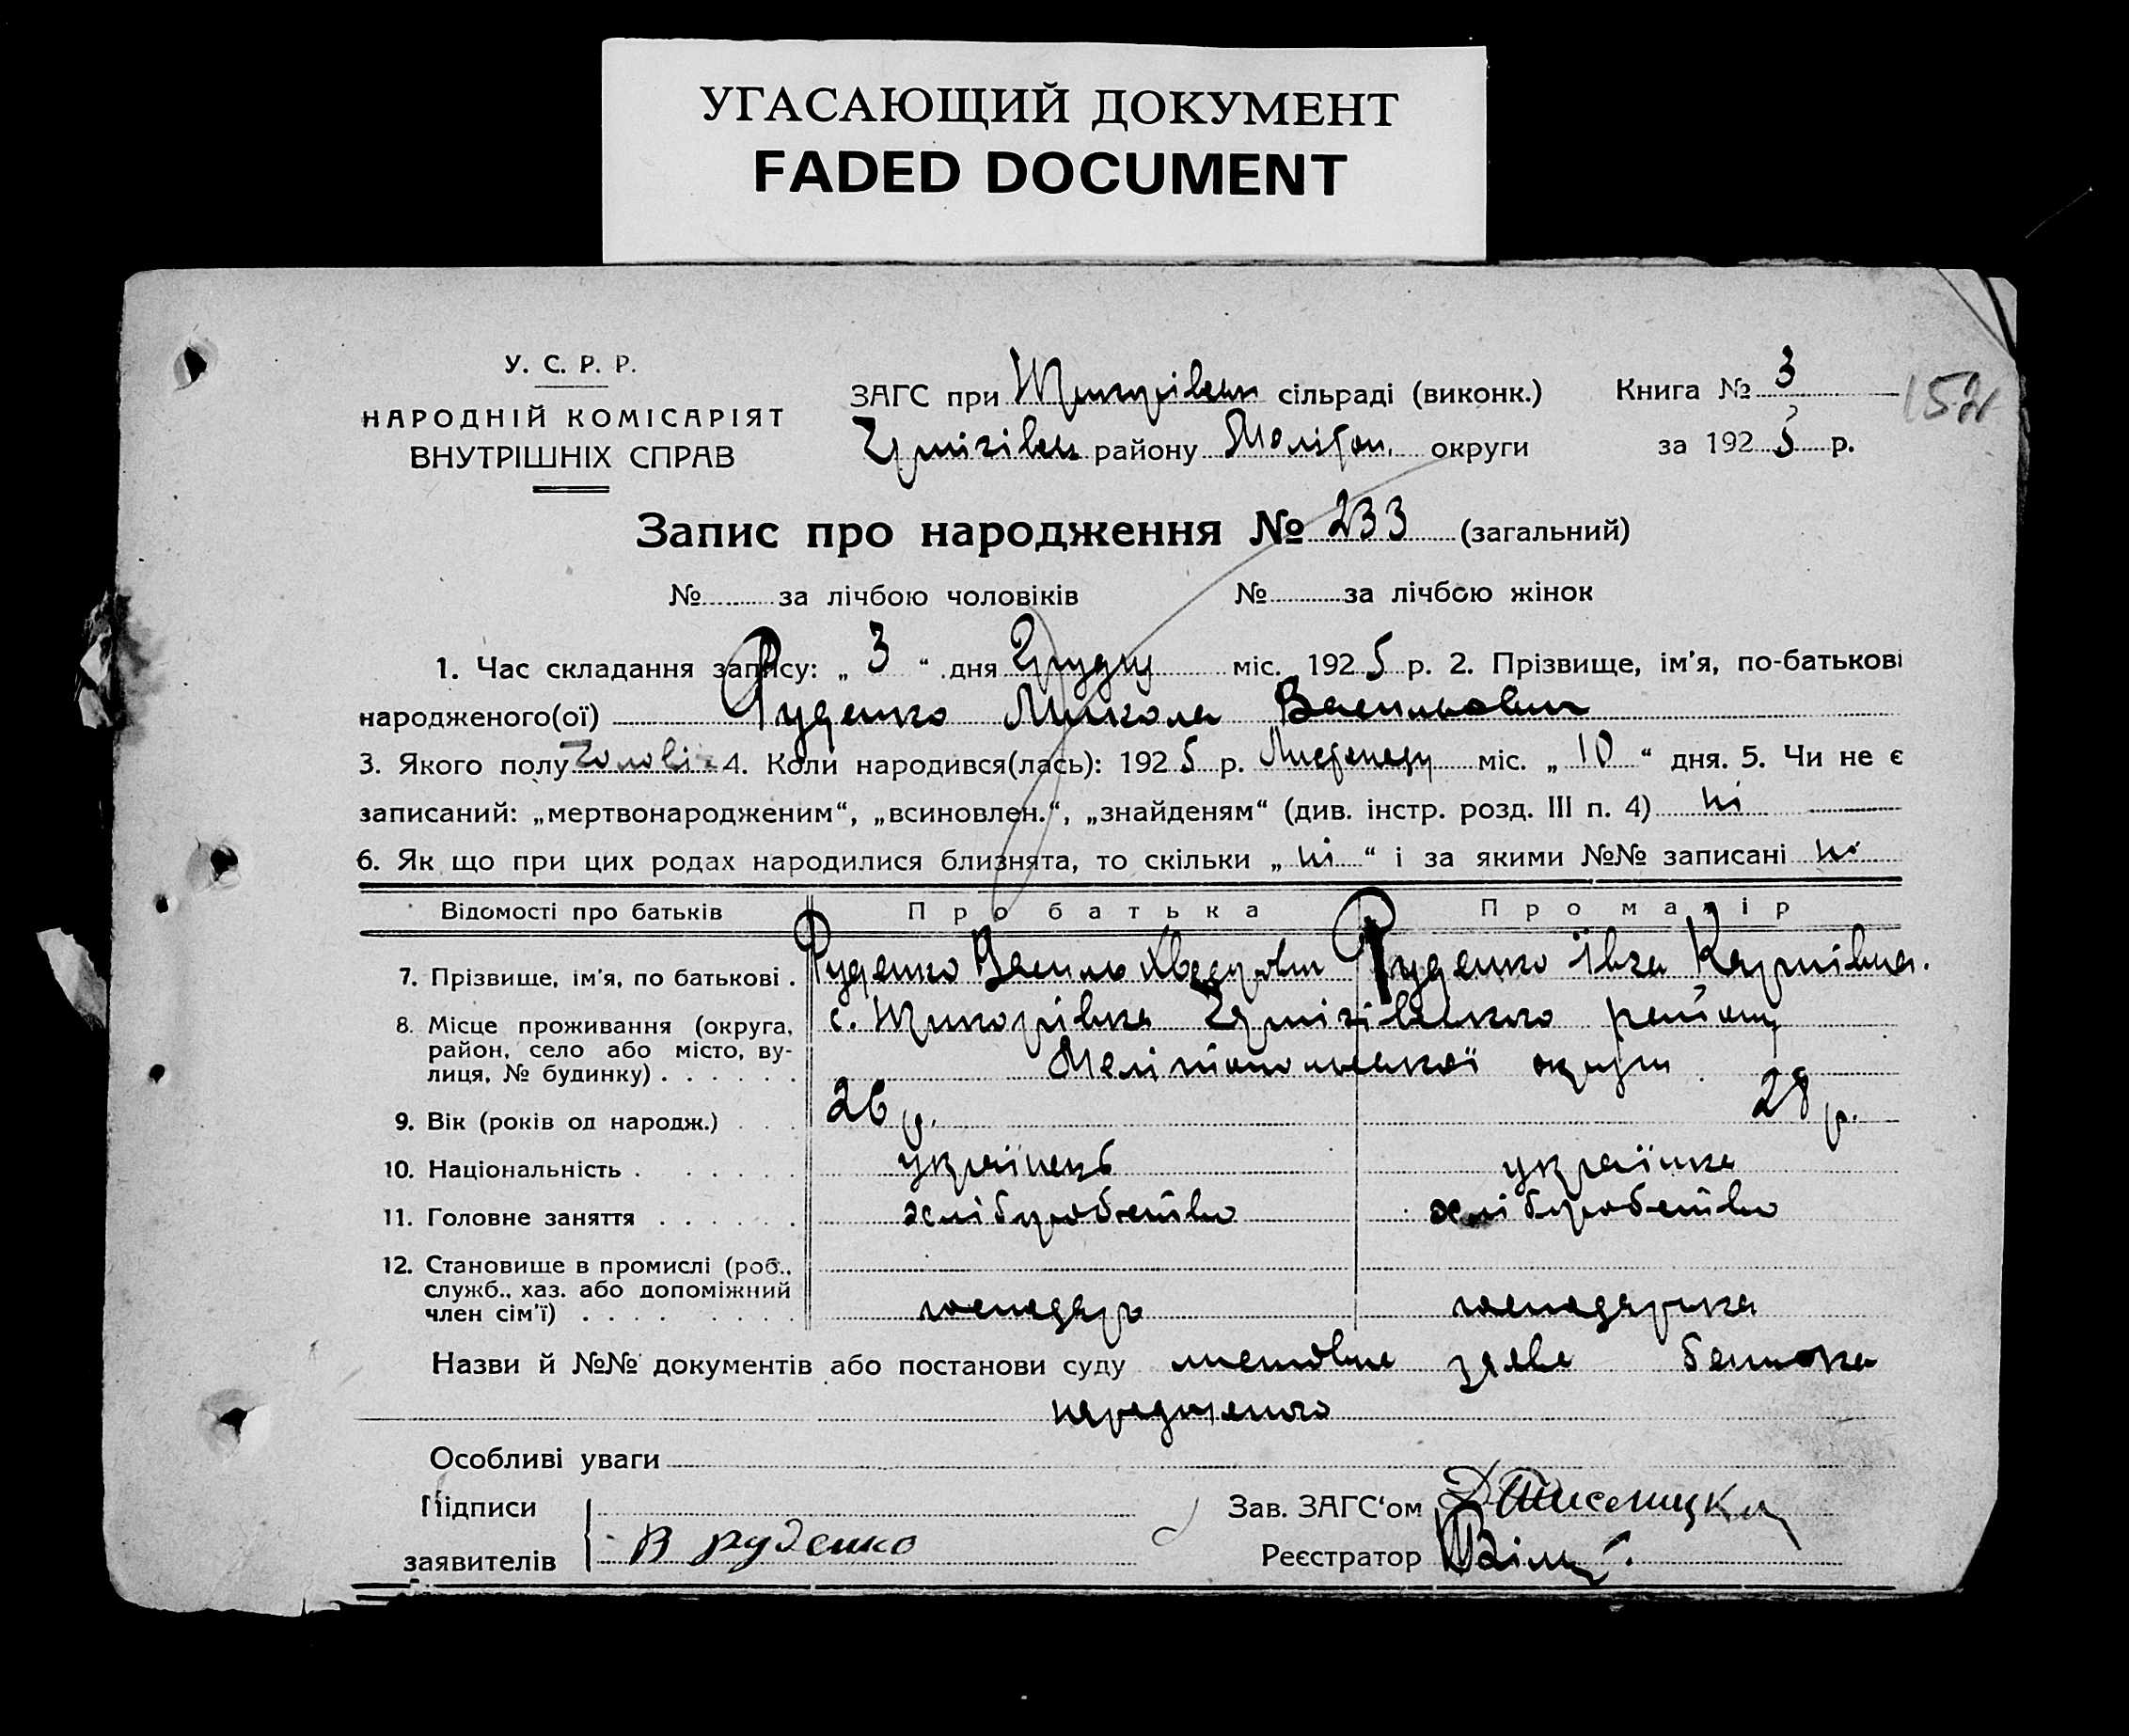 УГАСАЮЩИЙ ДОКУМЕНТ
FADED DOCUMENT
У. С. Р. Р.
НАРОДНІЙ КОМІСАРІЯТ
ВНУТРІШНІХ СПРАВ
ЗАГС при сільраді (виконк.)
району Меліт. округи
Книга № 3
за 1925 р.
Запис про народження № 233 (загальний)
№ за лічбою чоловіків № за лічбою жінок
1. Час складання запису: „ 3 “ дня Грудня міс. 1925 р. 2. Прізвище, ім'я, по-батькові
народженого(ої) Руденко Микола Васильович
3. Якого полу чоловіч 4. Коли народився(лась): 1925 р. Листопаду міс. „ 10 “ дня. 5. Чи не є
записаний: „мертвонародженим“, „всиновлен.“, „знайденям“ (див. інстр. розд. III п. 4) ні
6. Як що при цих родах народилися близнята, то скільки „ ні “ і за якими №№ записані ні
Відомості про батьків Про батька Про матір
7. Прізвище, ім'я, по батькові . Руденко Василь Хведорович Руденко Івга Карпівна.
8. Місце проживання (округа, район, село або місто, вулиця, № будинку) . . . . . . с. району
Мелітопольської округи
9. Вік (років од народж.) . . . 26 р. 28 р.
10. Національність . . . . . . українець українка
11. Головне заняття . . . . . . хліборобство хліборобство
12. Становище в промислі (роб., служб., хаз. або допоміжний член сім'ї) . . . . . . . . господарь господарка
Назви й №№ документів або постанови суду заява батька
народженого
Особливі уваги
Підписи
заявителів В руденко
Зав. ЗАГС'ом
Реєстратор